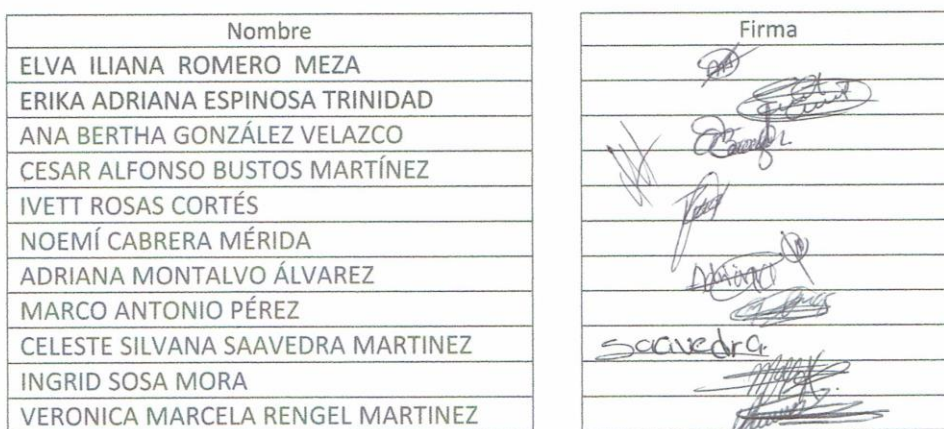 Nombre Firma
ELVA ILIANA ROMERO MEZA
ERIKA ADRIANA ESPINOSA TRINIDAD
ANA BERTHA GONZÁLEZ VELAZCO
CESAR ALFONSO BUSTOS MARTÍNEZ
IVETT ROSAS CORTÉS
NOEMÍ CABRERA MÉRIDA
ADRIANA MONTALVO ÁLVAREZ
MARCO ANTONIO PÉREZ
CELESTE SILVANA SAAVEDRA MARTINEZ Saavedra
INGRID SOSA MORA
VERONICA MARCELA RENGEL MARTINEZ